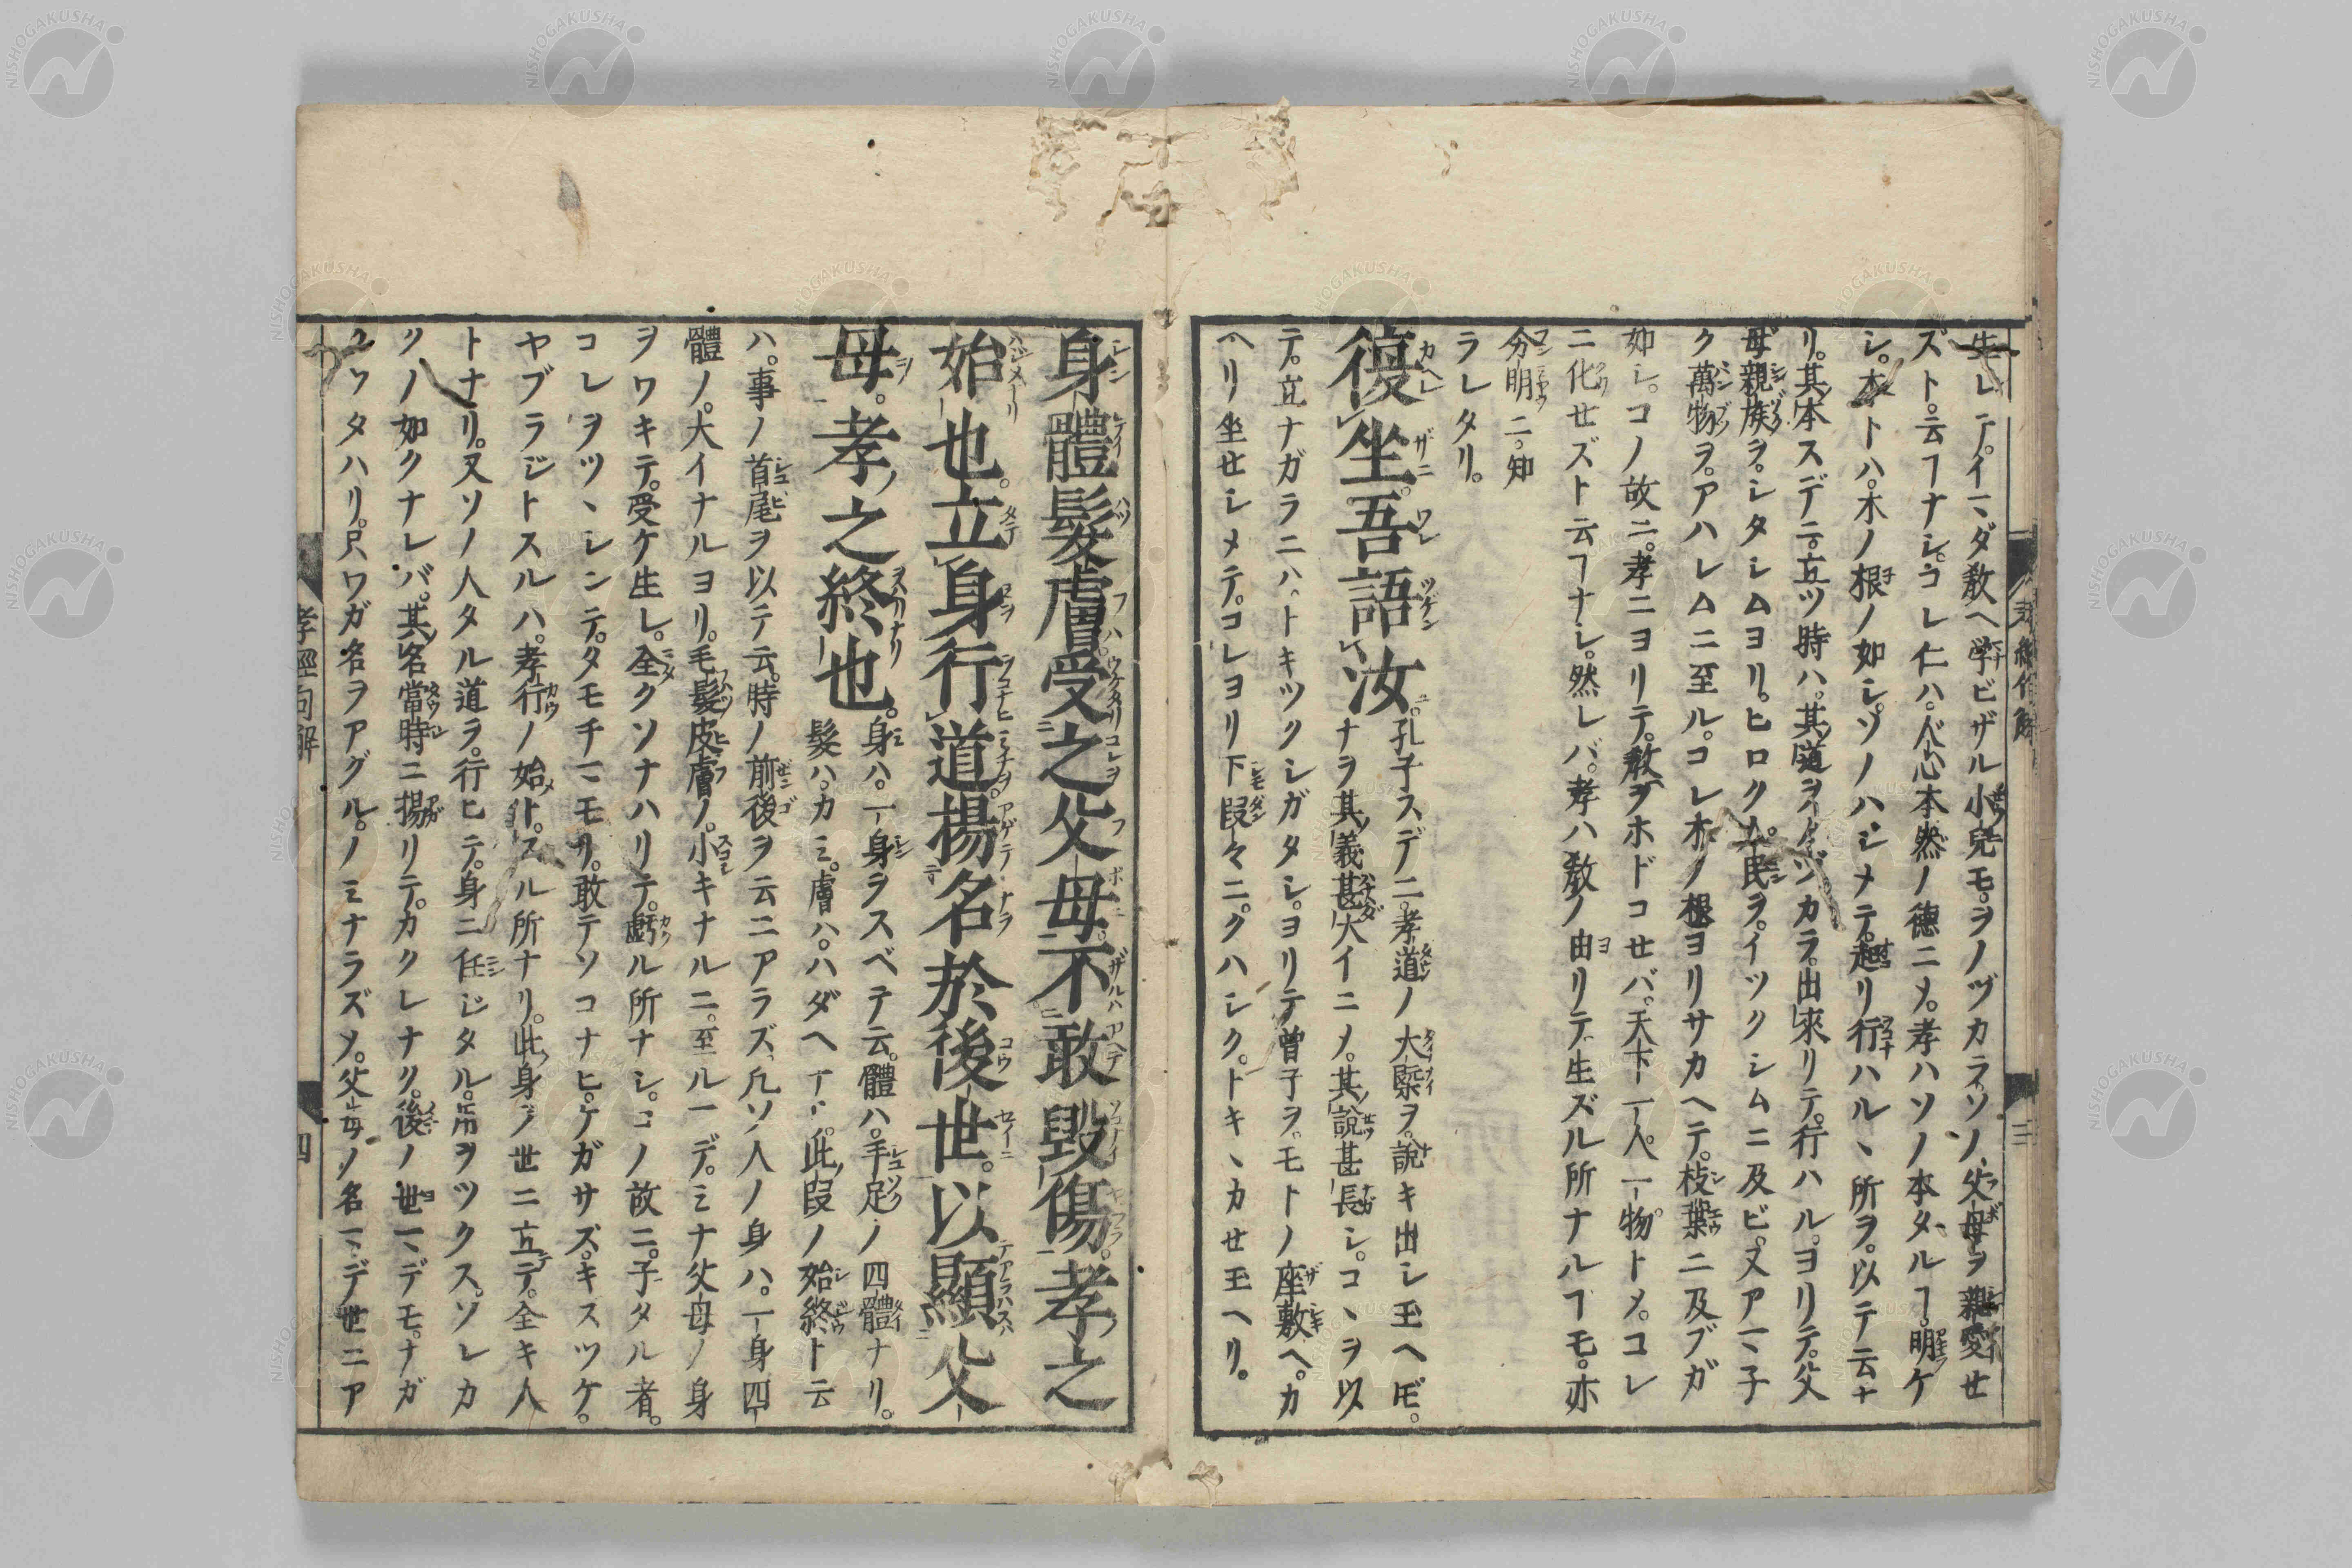 生レテ。イマダ教ヘ学ビザル小兒モ。ヲノヅカラ。ソノ父母ヲ親愛セ
ズト。云ヿナシ。コレ仁ハ。人心本然ノ德ニメ。孝ハソノ本タルヿ。明ケ
シ。本トハ。木ノ根ノ如シ。ソノハジメテ。起リ行ハル丶所ヲ。以テ云ナ
リ。其本スデニ。立ツ時ハ。其道ヲノヅカラ。出來リテ。行ハル。ヨリテ。父
母親族ヲ。シタシムヨリ。ヒロク。人民ヲ。イツクシムニ及ビ。又アマ子
ク萬物ヲ。アハレムニ至ル。コレ木ノ根ヨリサカヘテ。枝葉ニ及ブガ
如シ。コノ故ニ。孝ニヨリテ。教ヲホドコセバ。天下一人。一物トメ。コレ
ニ化セズト云ヿナシ。然レバ。孝ハ教ノ由リテ生ズル所ナルヿモ。亦
分明ニ。知
ラレタリ。
復坐吾語汝。孔子スデニ。孝道ノ大槩ヲ。説キ出シ玉ヘㇳ゙モ。
ナヲ其義甚大イニメ。其説甚長シ。コ丶ヲ以
テ。立ナガラニハ。トキツクシガタシ。ヨリテ曽子ヲ。モトノ座敷ヘ。カ
ヘリ坐セシメテ。コレヨリ下段々ニ。クハシク。トキ丶カせ玉ヘリ。
身體髮膚受之父母。不敢毀傷。孝之
始也。立身行道。揚名於後世。以顯父
母。孝之終也。身ハ。一身ヲスベテ云。體ハ。手足ノ四體ナリ。
髮ハ。カミ。膚ハ。ハダヘナリ。此段ノ始終ト云
ハ。事ノ首尾ヲ以テ云。時ノ前後ヲ云ニアラズ。凡ソ人ノ身ハ。一身四
體ノ。大イナルヨリ。毛髮皮膚ノ。小キナルニ。至ルマデ。ミナ父母ノ身
ヲワキテ。受ケ生レ。全クソナハリテ。虧ル所ナシ。コノ故ニ。子タル者。
コレヲツ丶シンデ。タモチマモリ。敢テソコナヒ。ケガサズ。キズツケ。
ヤブラジトスルハ。孝行ノ始トスル所ナリ。此身ヲ世ニ立テ。全キ人
トナリ。又ソノ人タル道ヲ。行ヒテ。身ニ任ジタル。所ヲツクス。ソレカ
クノ如クナレバ。其名當時ニ揚リテ。カクレナク。後ノ世マデモ。ナガ
クツタハリ。只ワガ名ヲアグル。ノミナラズメ。父母ノ名マデ世ニア
孝經句解
四
三